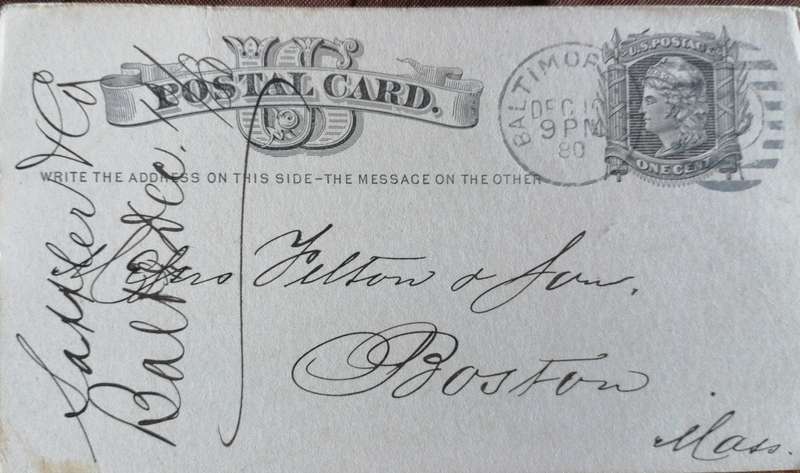 US
POSTAL CARD.
WRITE THE ADDRESS ON THIS SIDE–THE MESSAGE ON THE OTHER
BALTIMOR
DEC 10
9 PM
80
U.S. POSTAGE
ONE CENT
Messrs Felton & Son,
Boston
Mass.
& Co
Balto Dec.